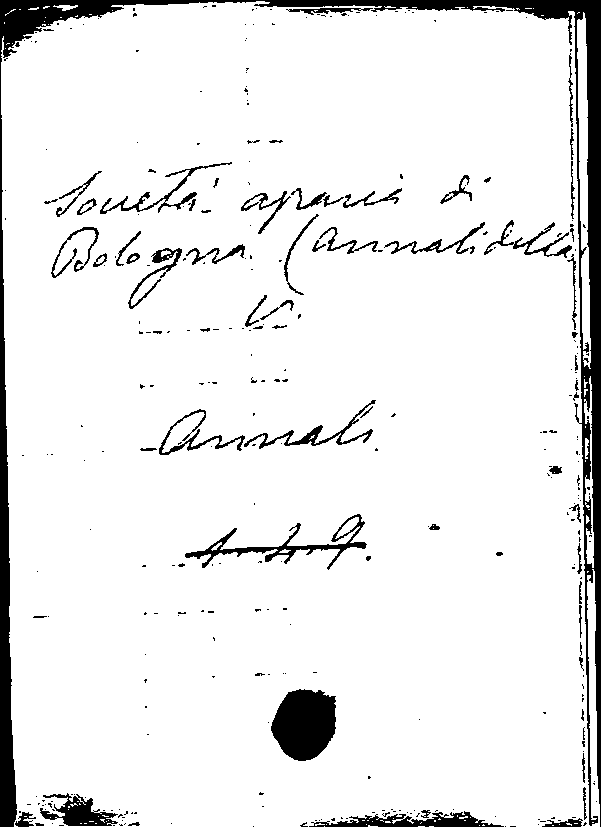 Società agraria di
Bologna (Annali della)
V.
Annali.
1.4.9.